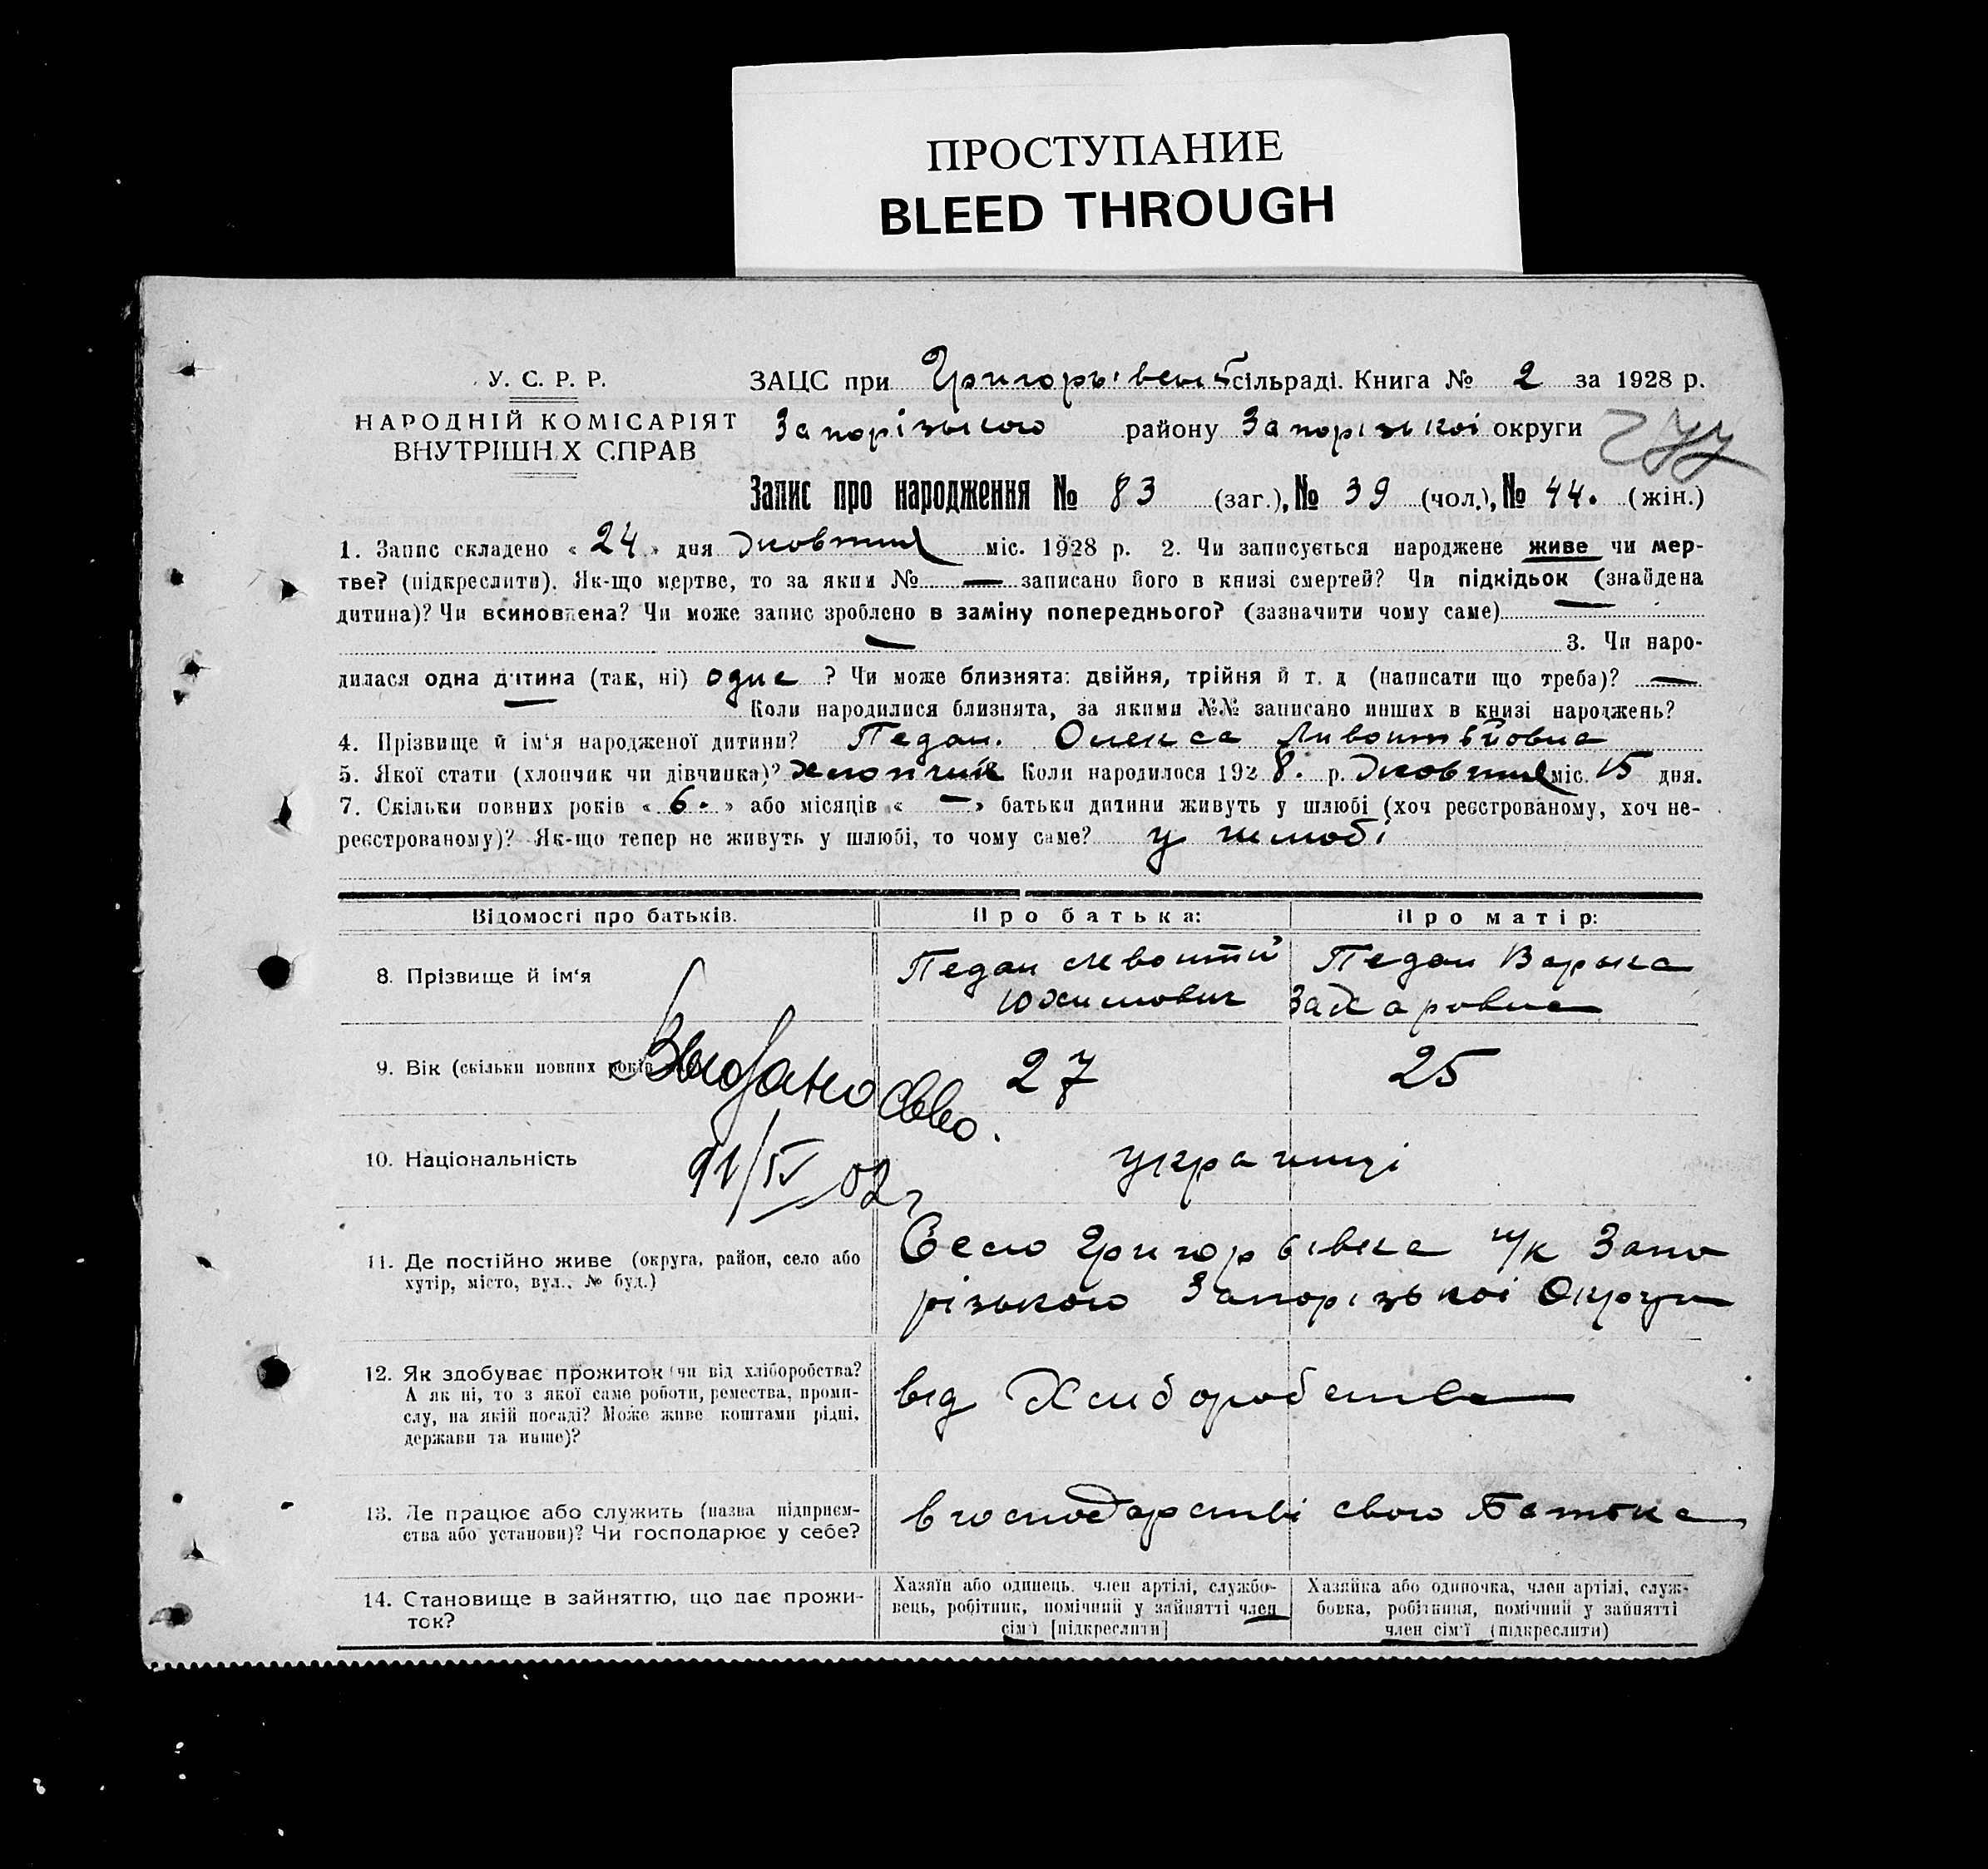 ПРОСТУПАНИЕ
BLEED THROUGH
У. С. Р. Р.
НАРОДНІЙ КОМІСАРІЯТ
ВНУТРІШНІХ СПРАВ
ЗАЦС при сільраді. Книга № 2 за 1928 р.
Запорізького району Запорізької округи
277
Запис про народження № 83 (заг.), № 39 (чол.), № 44. (жін.)
1. Запис складено « 24 » дня Жовтня міс. 1928 р. 2. Чи записується народжене живе чи мер-
тве? (підкреслити). Як-що мертве, то за яким № — записано його в книзі смертей? Чи підкідьок (знайдена
дитина)? Чи всиновлена? Чи може запис зроблено в заміну попереднього? (зазначити чому саме) —
— 3. Чи наро-
дилася одна дитина (так, ні) одна ? Чи може близнята: двійня, трійня й т. д (написати що треба)? —
— Коли народилися близнята, за якими №№ записано инших в книзі народжень?
4. Прізвище й ім'я народженої дитини? Педан. Олекса
5. Якої стати (хлопчик чи дівчинка)? хлопчик Коли народилося 1928. р. Жовтня міс. 15 дня.
7. Скільки повних років « 6. » або місяців « — » батьки дитини живуть у шлюбі (хоч реєстрованому, хоч не-
реєстрованому)? Як-що тепер не живуть у шлюбі, то чому саме? у шлюбі
Відомості про батьків. Про батька: Про матір:
8. Прізвище й ім'я Педан Юхимович Педан Варька Захаровна
9. Вік (скільки повних років 27 25
Выдано
10. Національність українці
11. Де постійно живе (округа, район, село або
хутір, місто, вул., № буд.)
Село Григорьівка Запо
різького Запорізької Округи
12. Як здобуває прожиток (чи від хліборобства?
А як ні, то з якої саме роботи, ремества, проми-
слу, на якій посаді? Може живе коштами рідні,
держави та инше)?
від Хліборобства
13. Де працює або служить (назва підприєм-
ства або установи)? Чи господарює у себе?
в господарстві свого Батька
14. Становище в зайняттю, що дає прожи-
ток?
Хазяїн або одинець, член артілі, службо-
вець, робітник, помічний у зайнятті член
сім'ї [підкреслити]
Хазяйка або одиночка, член артілі, служ-
бовка, робітниця, помічний у зайнятті
член сім'ї (підкреслити)